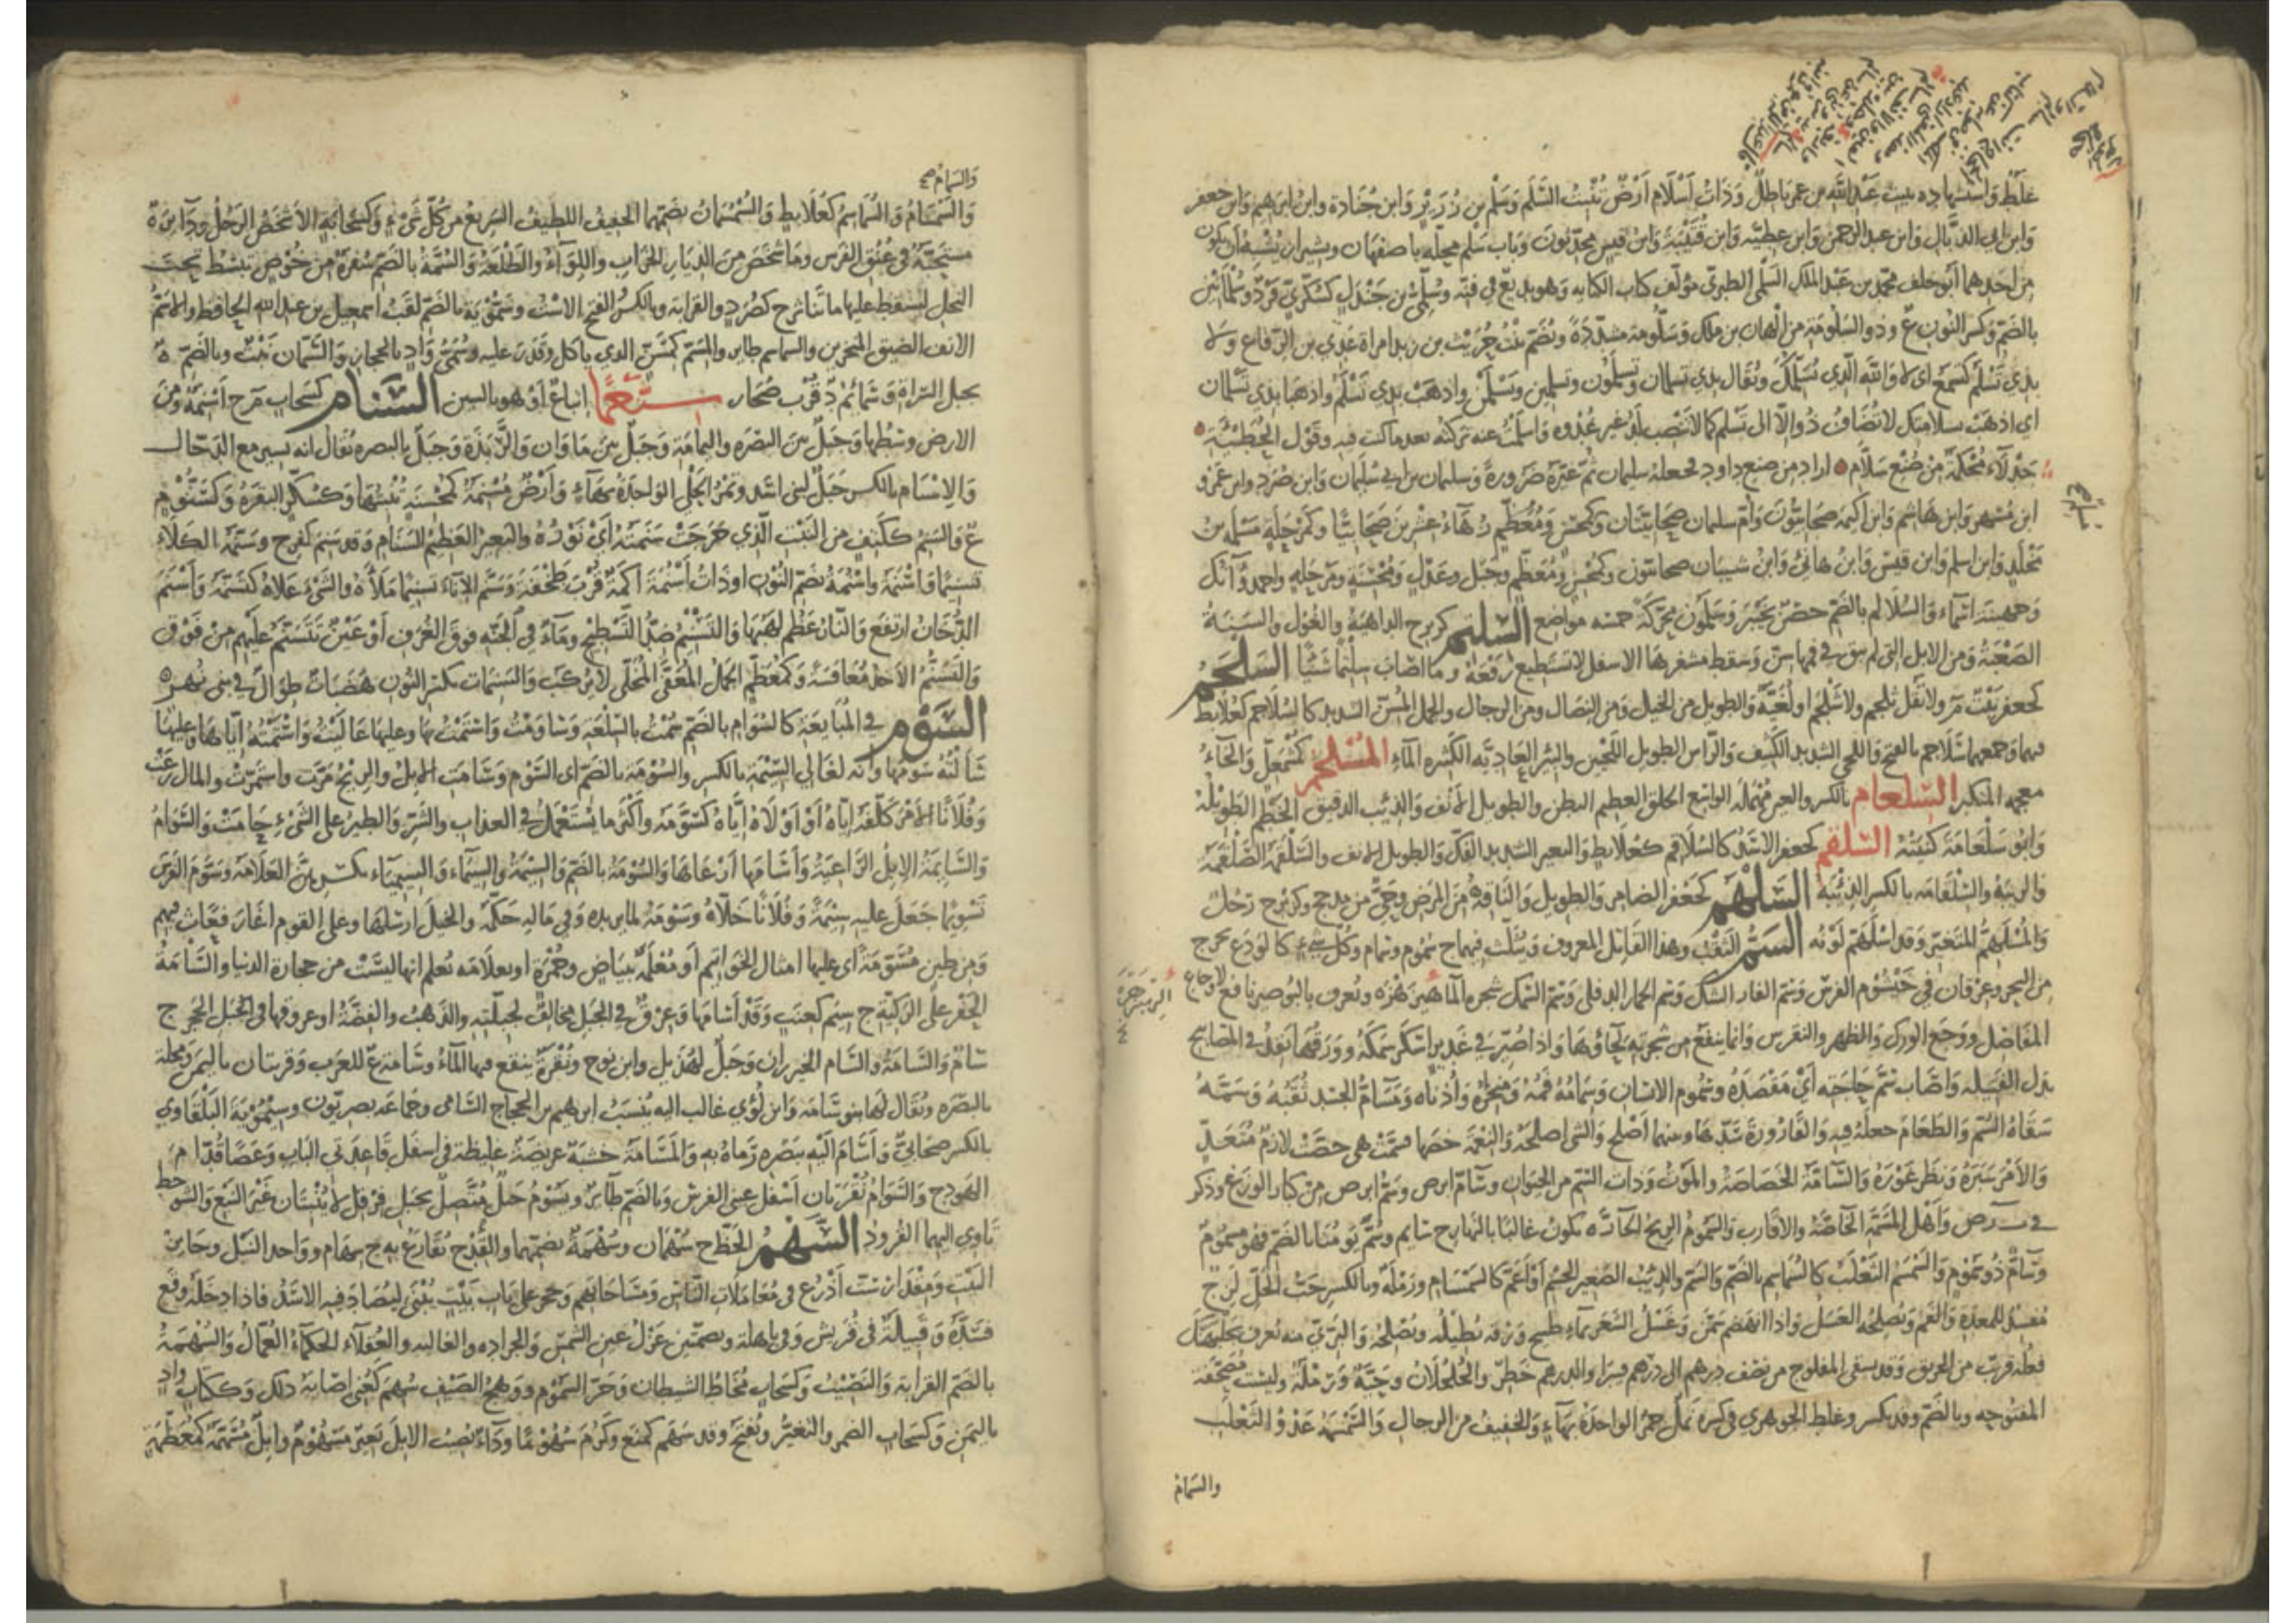 غلط واستشهاده ببيت عبد الله بن عمر باطل وذات أسلام أرض تنبت السلم وسلم بن زرير وابن جنادة وابن ابراهيم وابن جعفر
وابن ابي الذيال وابن عبد الرحمن وابن عطية وابن قتيبة وابن قيس محدثون وباب سلم محلة باصفهان وبشيراز يشبه ان يكون
من احدهما أبو خلف محمد بن عبد الملك السلمي الطبري مؤلف كتاب الكنايه وهو بديع في فنه وسلمى بن جندل كسكرى فرد وسلمانين
بالضم وكسر النون ع وذو السلومة من الهان بن مالك وسلومة مشددة وتضم بنت حريث بن زيد امراة عدي بن الرقاع ولا
بذي تسلم كتسمع اي لا والله الذي يسلمك ويقال بذي تسلمان وتسلمون وتسلمين وتسلمن واذهب بذي تسلم واذهبا بذي تسلمان
اي اذهب بسلامتك لا تضاف ذو الا الى تسلم كما لا تنصب لدن غير غدوة واسلمت عنه تركته بعد ما كنت فيه وقول الحطيئة
جدلاء محكمة من صنع سلام اراد من صنع داود فجعله سليمان ثم غيره ضرورة وسليمان بن ابي سليمان وابن صرد وابن عمرو
ابن مسهر وابن هاشم وابن اكيمه صحابيون وام سليمان صحابيتان وكمحسن ومعظم زهاء عشرين صحابيا وكمرحلة مسلمة بن
مخلد وابن اسلم وابن قيس وابن هانئ وابن شيبان صحابيون وكمحسن ومعظم وجبل وعدل ومحسنة ومرحلة واحمد وآنك
وجهينة اسماء والسلالم بالضم حصن بخيبر وسلمون محركة خمسه مواضع السلتم كزبرج الداهية والغول والسنة
الصعبة ومن الابل التي لم يبق في فمها سن وسقط مشفرها الاسفل لا تستطيع رفعه وما اصاب سلتما شيئا السلجم
كجعفر نبت م ولا تقل ثلجم ولا شلجم او لغية والطويل من الخيل ومن النصال ومن الرجال والجمل المسن الشديد كالسلاجم كعلابط
فيهما وجمعهما سلاجم بالفتح واللحي الشديد الكثيف والراس الطويل اللحيين والبئر العادية الكثيره الماء المسلخم كمشمعل والخاء
معجمة المتكبر السلعام بالكسر والعين مهملة الواسع الحلق العظيم البطن والطويل الانف والذئب الدقيق الخطم الطويله
وابو سلعامة كنيته السلقم كجعفر الاسد كالسلاقم كعلابط والبعير الشديد الفك والطويل الانف والسلقمة الصلقمة
والريبة والسلقامه بالكسر الذئبة السلهم كجعفر الضامر والطويل والناقه من المرض وحي من مذحج وكزبرج رجل
والمسلهم المتغير وقد اسلهم لونه السم الثقب وهذا القاتل المعروف ويثلث فيهما ج سموم وسمام وكل شيء كالودع يخرج
من البحر وعرقان في خيشوم الفرس وسم الفار الشك وسم الحمار الدفلى وسم السمك شجرة الماهيزهزه وتعرف بالبوصير نافع لاوجاع
المفاصل ووجع الورك والظهر والنقرس وانما ينفع من شجرته لحاؤها واذا صير في غدير اسكر سمكه وورقها يتخذ في المصابيح
بدل الفتيله واصاب سم حاجته أي مقصده وسموم الانسان وسمامه فمه ومنخره وأذناه ومسام الجسد ثقبه وسمه
سقاه السم والطعام جعله فيه والقارورة سدها وبينهما أصلح والشي اصلحه والنعمة خصها فسمت هي خصت لازم متعد
والامر سبره ونظر غوره والسامة الخاصة والموت وذات السم من الحيوان وسام ابرص وسم ابرص من كبار الوزغ وذكر
في ب ر ص وأهل المسمة الخاصة والاقارب والسموم الريح الحاره تكون غالبا بالنهار ج سمايم وسم يومنا بالضم فهو مسموم
وسام ذو سموم والسمسم الثعلب كالسماسم بالضم والسم والذئب الصغير الجسم او اعم كالسمسام ورملة وبالكسر حب الحل لزج
مفسد للمعدة والفم ويصلحه العسل واذا انهضم سمن وغسل الشعر بماء طبيخ ورقه يطيله ويصلحه والبري منه يعرف بجلبهنك
فعله قريب من الخربق وقد يسقى المفلوج من نصف درهم الى درهم فيبرا والدرهم خطر والجلجلان وحية ورملة وليست مصحفة
المفتوحه وبالضم وقد يكسر وغلط الجوهري في كسره نمل حمر الواحدة بهاء والخفيف من الرجال والسمسمة عدو الثعلب
والسمام
والسمام صح
والسمسام والسماسم كعلابط والسمسمان بضمهما الخفيف اللطيف السريع من كل شيء وكسحابة الاشخص الرجل ودائرة
مستحبة في عنق الفرس وما شخص من الديار الخراب واللواء والطلعة والسمة بالضم سفرة من خوص تبسط تحت
النخل ليسقط عليها ما تناثر ج كصرد والقرابة وبالكسر والفتح الاست وسمويه بالضم لقب اسمعيل بن عبد الله الحافظ والاسم
الانف الضيق المنخرين والسماسم طاير والمسم كمسن الذي ياكل ما قدر عليه وسمى واد بالحجاز والسمان نبت وبالضم ة
بجبل السراة وسمائم د قرب صحار سنغما اتباع او هو بالسين السنام كسحاب م ج أسنمة ومن
الارض وسطها وجبل بين البصره واليمامة وجبل بين ماوان والربذة وجبل بالبصره يقال انه يسير مع الدجال
والاسنام بالكسر جبل لبني اسد وثمر الحلي الواحدة بهاء وأرض مسنمة كمحسنة تنبتها وكسكر البقرة وكسنوم
ع والسنم ككتف من النبت الذي خرجت سنمته أي نوره والبعير العظيم السنام وقد سنم كفرح وسنمه الكلا
تسنيما واسنمة واسنمة بضم النون او ذات أسنمة أكمة قرب طخفة وسنم الإناء تسنيما ملأه والشيء علاه كتسنمه وأسنم
الدخان ارتفع والنار عظم لهبها والتسنيم ضد التسطيح وماء في الجنه فوق الغرف او عين تتسنم عليهم من فوق
والتسنم الاخذ مغافصة وكمعظم الجمل المعفى المخلى لا يركب والسنمات بكسر النون هضبات طوال في بني نمير
السوم في المبايعة كالسوام بالضم سمت بالسلعة وساومت واستمت بها وعليها غاليت واستمته اياها وعليها
سألته سومها وانه لغالي السيمة بالكسر والسومة بالضم اي السوم وسامت الابل والريح مرت واستمرت والمال رعت
وفلانا الامر كلفه اياه او اولاه اياه كسومه وأكثر ما يستعمل في العذاب والشر والطير على الشيء حامت والسوام
والسايمة الابل الراعية وأسامها أرعاها والسومة بالضم والسيمة والسيماء والسيمياء بكسرهن العلامة وسوم الفرس
تسويما جعل عليه سيمة وفلانا خلاه وسومه لما يريده وفي ماله حكمه والخيل ارسلها وعلى القوم اغار فعاث فيهم
ومن طين مسومة أي عليها امثال الخواتيم أو معلمة ببياض وحمرة او بعلامة يعلم انها ليست من حجارة الدنيا والسامة
الحفر على الركية ج سيم كعنب وقد أسامها وعرق في الجبل مخالف لجبلته والذهب والفضة او عروقهما في الحجر ج
سام والسامة والسام الخيزران وجبل لهذيل وابن نوح ونقرة ينقع فيها الماء وسامة ع للعرب وقريتان باليمن ومحلة
بالبصره ويقال لها بنو سامة وابن لؤي غالب اليه ينسب ابراهيم بن الحجاج السامي وجماعه بصريون وسيمويه البلقاوي
بالكسر صحابي وأسام اليه ببصره رماه به والمسامة خشبة عريضة غليظة في اسفل قاعدتي الباب وعصا قدام
الهودج والسوام نقرتان أسفل عيني الفرس وبالضم طاير ويسوم جبل متصل بجبل فرقد لا ينبتان غير النبع والشوحط
تاوي اليهما القرود السهم الحظ ج سهمان وسهمة بضمهما والقدح يقارع به ج سهام وواحد النبل وجايز
البيت ومقدار ست أذرع في معاملات الناس ومساحاتهم وحجر على باب بيت يبنى ليصاد فيه الاسد فاذا دخله وقع
فسده وقبيلة في قريش وفي باهلة وبضمتين غزل عين الشمس والحراره والغالبه والعقلاء الحكماء العمال والسهمة
بالضم القرابة والنصيب وكسحاب مخاط الشيطان وحر السموم ووهج الصيف سهم كعني اصابه ذلك وككتاب واد
باليمن وكسحاب الضمر والتغير ويفتح وقد سهم كمنع وكرم سهوما وداء يصيب الابل بعير مسهوم وابل مسهمة كمعظمة